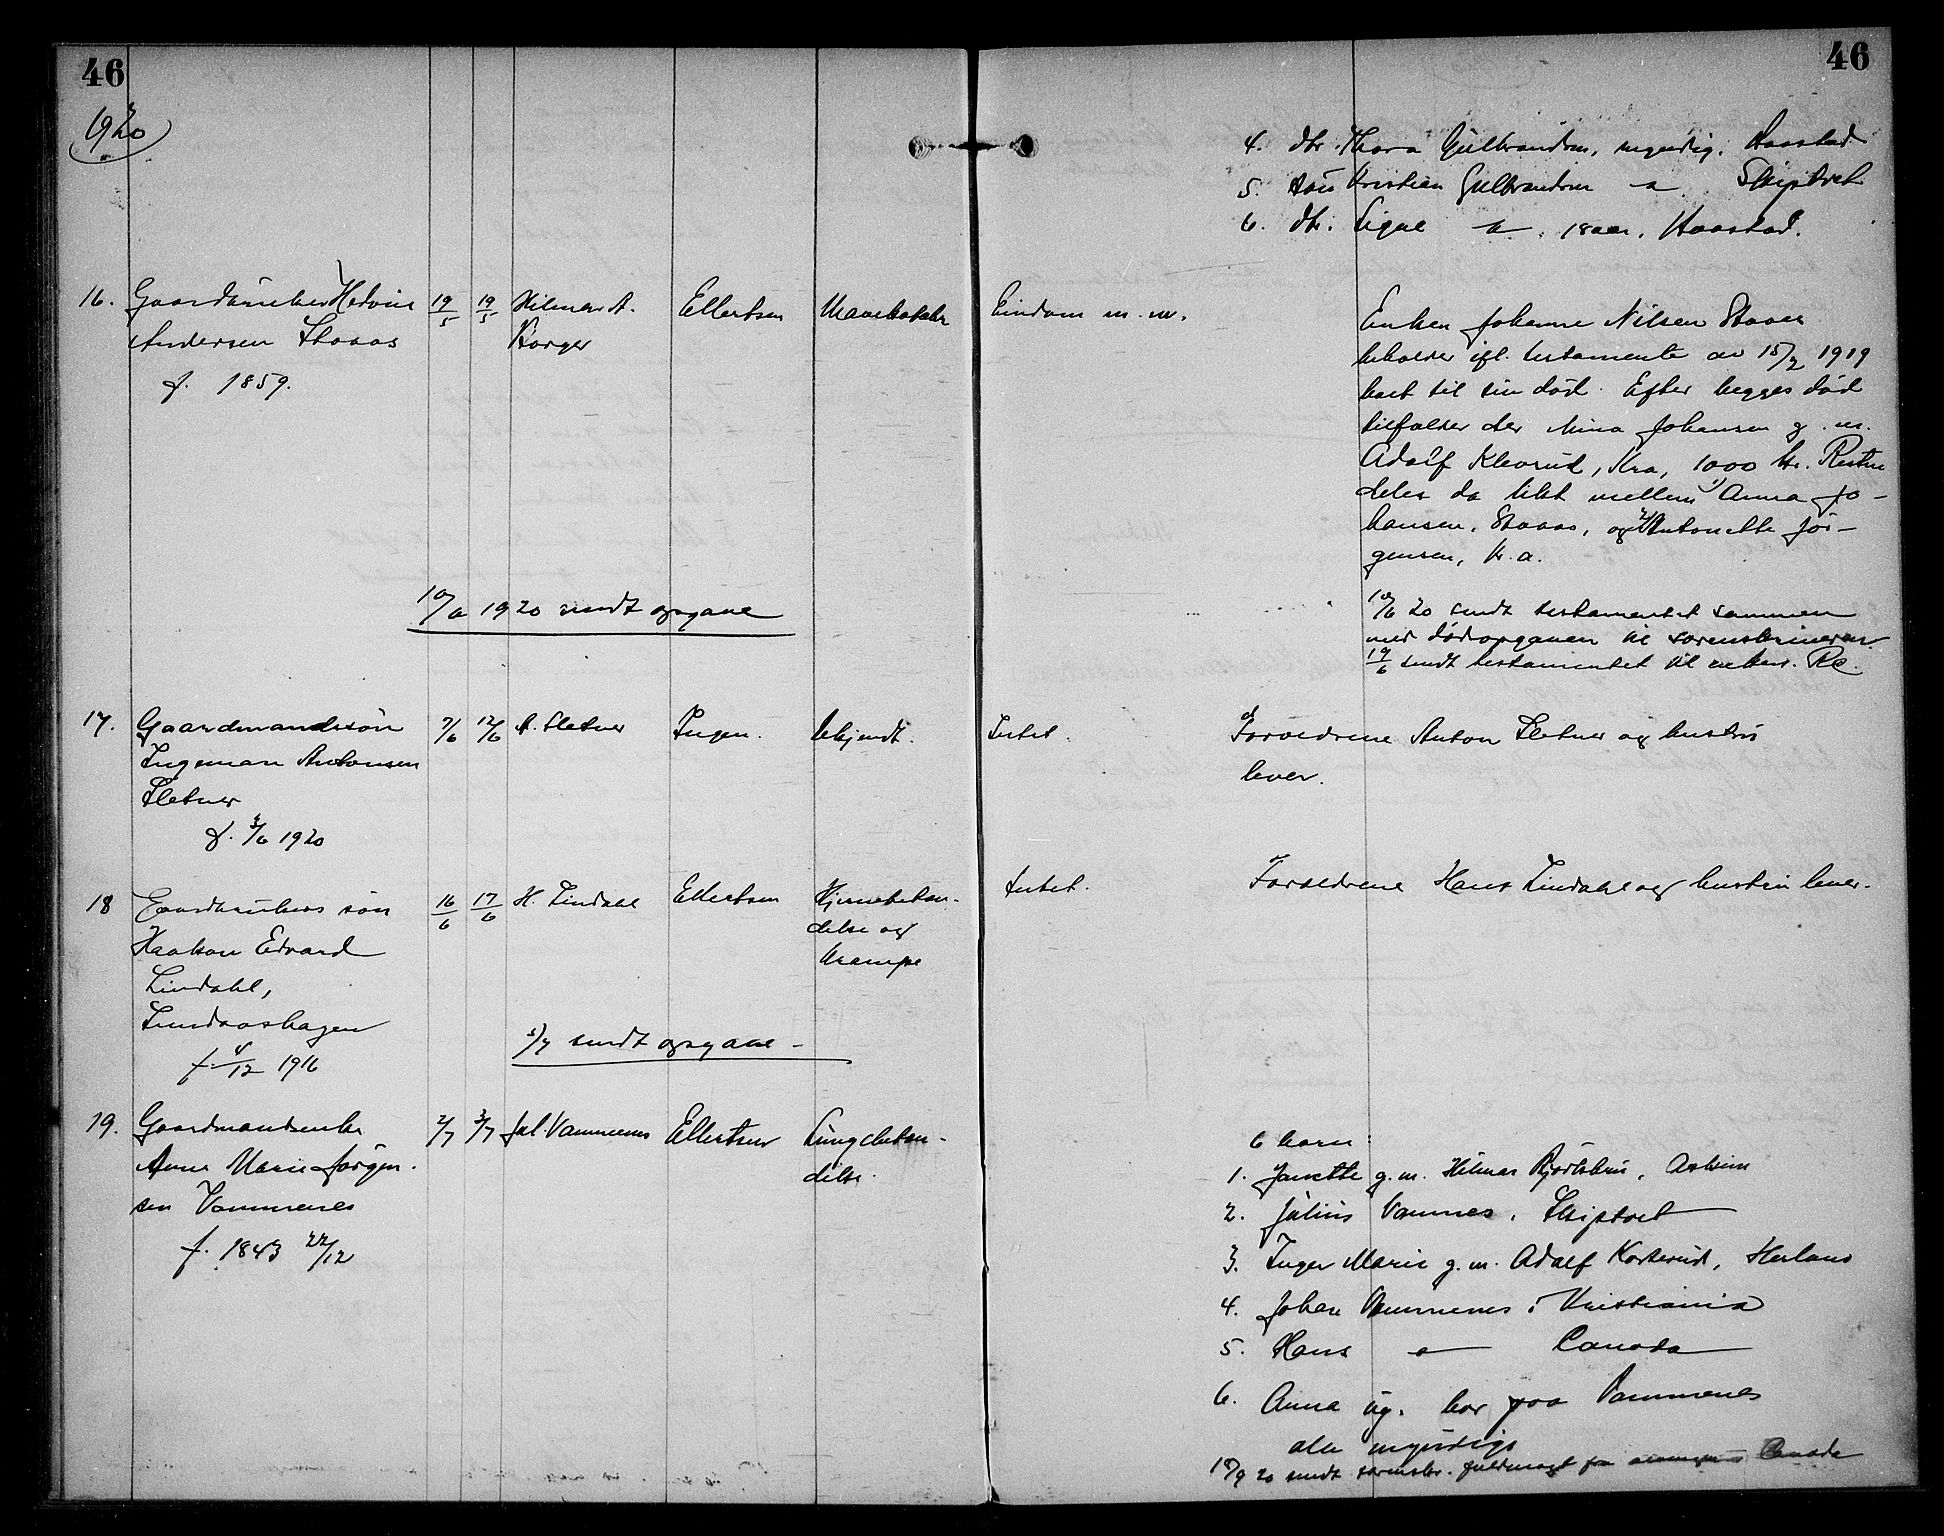 46
46
1920
4. dtr. Thora Gulbrandsen, myndig, Haastad
5. søn Kristian Gulbrandsen — Skiptvet
6. dtr. Signe — 18 aar, Haastad.
16. Gaardbruker
Andersen Staaas
f. 1859.
19/5 19/5 Hilmar A. Korger
Ellertsen
Mavekatahr
Eiendom m. m.
Enken Johanne Nilsen Staaas
beholder ifl. testamente av 15/2 1919
boet til sin død. Efter begges død
tilfalder der Mina Johansen g. m.
Adolf Klevrud, Kra, 1000 kr. Resten
deles da likt mellem 1) Anna Jo-
hansen, Staaas, og 2) Antonette Jør-
gensen, Kr.a.
10/6 1920 sendt opgave
10/6 20 sendt testamentet sammen
med dødsopgaven til sorenskriveren.
19/6 sendt testamentet til enken.
17. Gaardmandssøn
Ingeman Antonsen
Sletner
f. 3/6 1920
7/6 12/6 A. Sletner
Ingen.
Ukjendt.
Intet.
Forældrene Anton Sletner og hustru
lever.
18 Gaardbrukers søn
Haakon Edvard
Lindahl,
Lundaashagen
f. 4/12 1916
16/6 17/6 H. Lindahl
Ellertsen
Hjernebetæn-
delse og
krampe
Intet.
Forældrene Hans Lindahl og hustru lever.
5/7 sendt opgave —
19. Gaardmandsenke
Anne Marie Jørgen-
sen Vammenes
f. 1843 22/12
2/7 3/7 Jul. Vammenes
Ellertsen
Lungebetæn-
delse.
6 barn:
1. Janette g. m. Hilmar, Askim
2. Julius Vamnes, Skiptvet
3. Inger Marie g. m. Adolf Korterud,
4. Johan Vammenes, Kristiania
5. Hans — Canada
6. Anna ug. bor paa Vammenes
alle myndige
20 sendt sorenskr. fuldmagt fra Canada